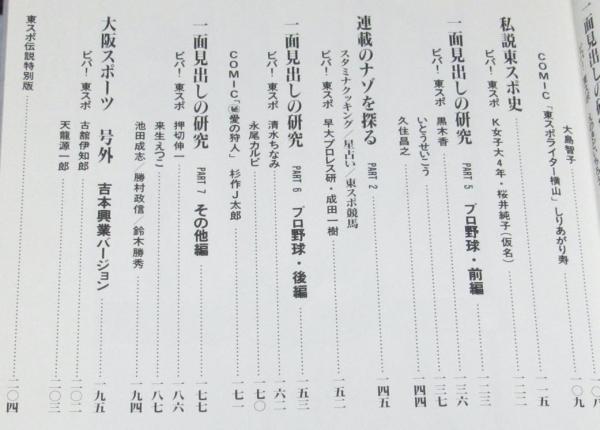 一面見出しの研究
ビバ！東スポ
大島智子 一〇九
COMIC「東スポライター横山」しりあがり寿 一一五
私説東スポ史 一二三
ビバ！東スポ K女子大4年・桜井純子（仮名） 一三三
一面見出しの研究 PART 5 プロ野球・前編 一三六
ビバ！東スポ 黒木香 一三七
いとうせいこう 一四四
久住昌之
連載のナゾを探る PART 2 一四五
スタミナクッキング／星占い／東スポ競馬
ビバ！東スポ 早大プロレス研・成田一樹 一五二
一面見出しの研究 PART 6 プロ野球・後編 一五三
ビバ！東スポ 清水ちなみ 一六二
永尾カルビ 一七〇
COMIC「㊙愛の狩人」杉作J太郎 一七一
一面見出しの研究 PART 7 その他編 一七七
ビバ！東スポ 押切伸一 一八六
来生えつこ 一八七
池田成志／勝村政信／鈴木勝秀 一九四
大阪スポーツ 号外 吉本興業バージョン 一九五
ビバ！東スポ 古舘伊知郎 二〇二
天龍源一郎 二〇三
東スポ伝説特別版 二〇四